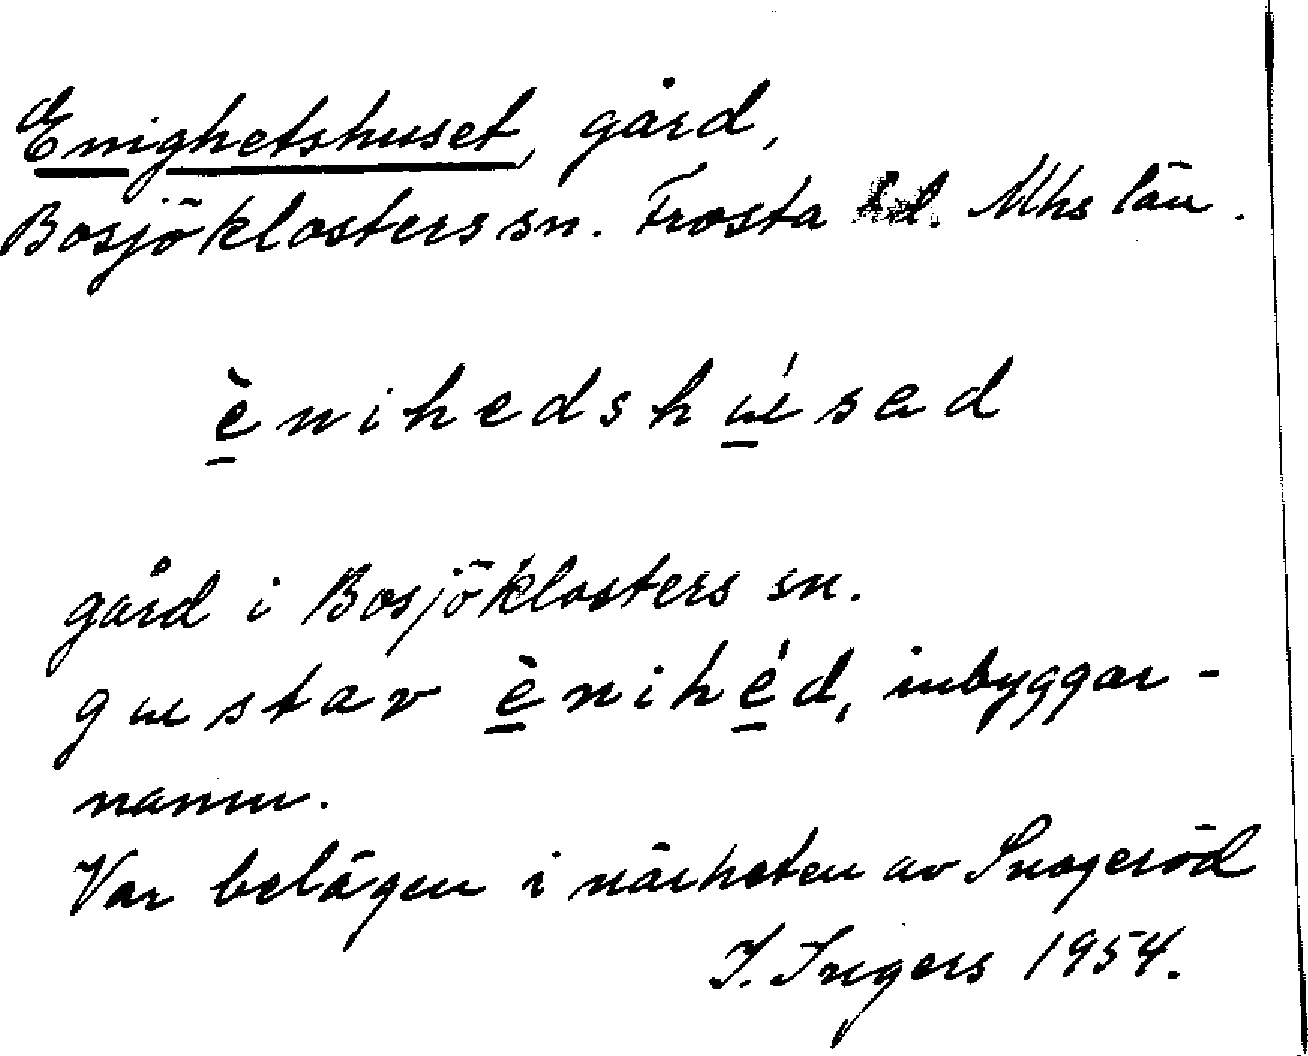 Enighetshuset, gård,
Bosjöklosters sn. Frosta hd. Mhs län.
è̱nihedshú̱sad
gård i Bosjöklosters sn.
gustav è̱nihé̱d, inbyggar-
namn.
Var belägen i närheten av Snogeröd
I. Ingers 1954.